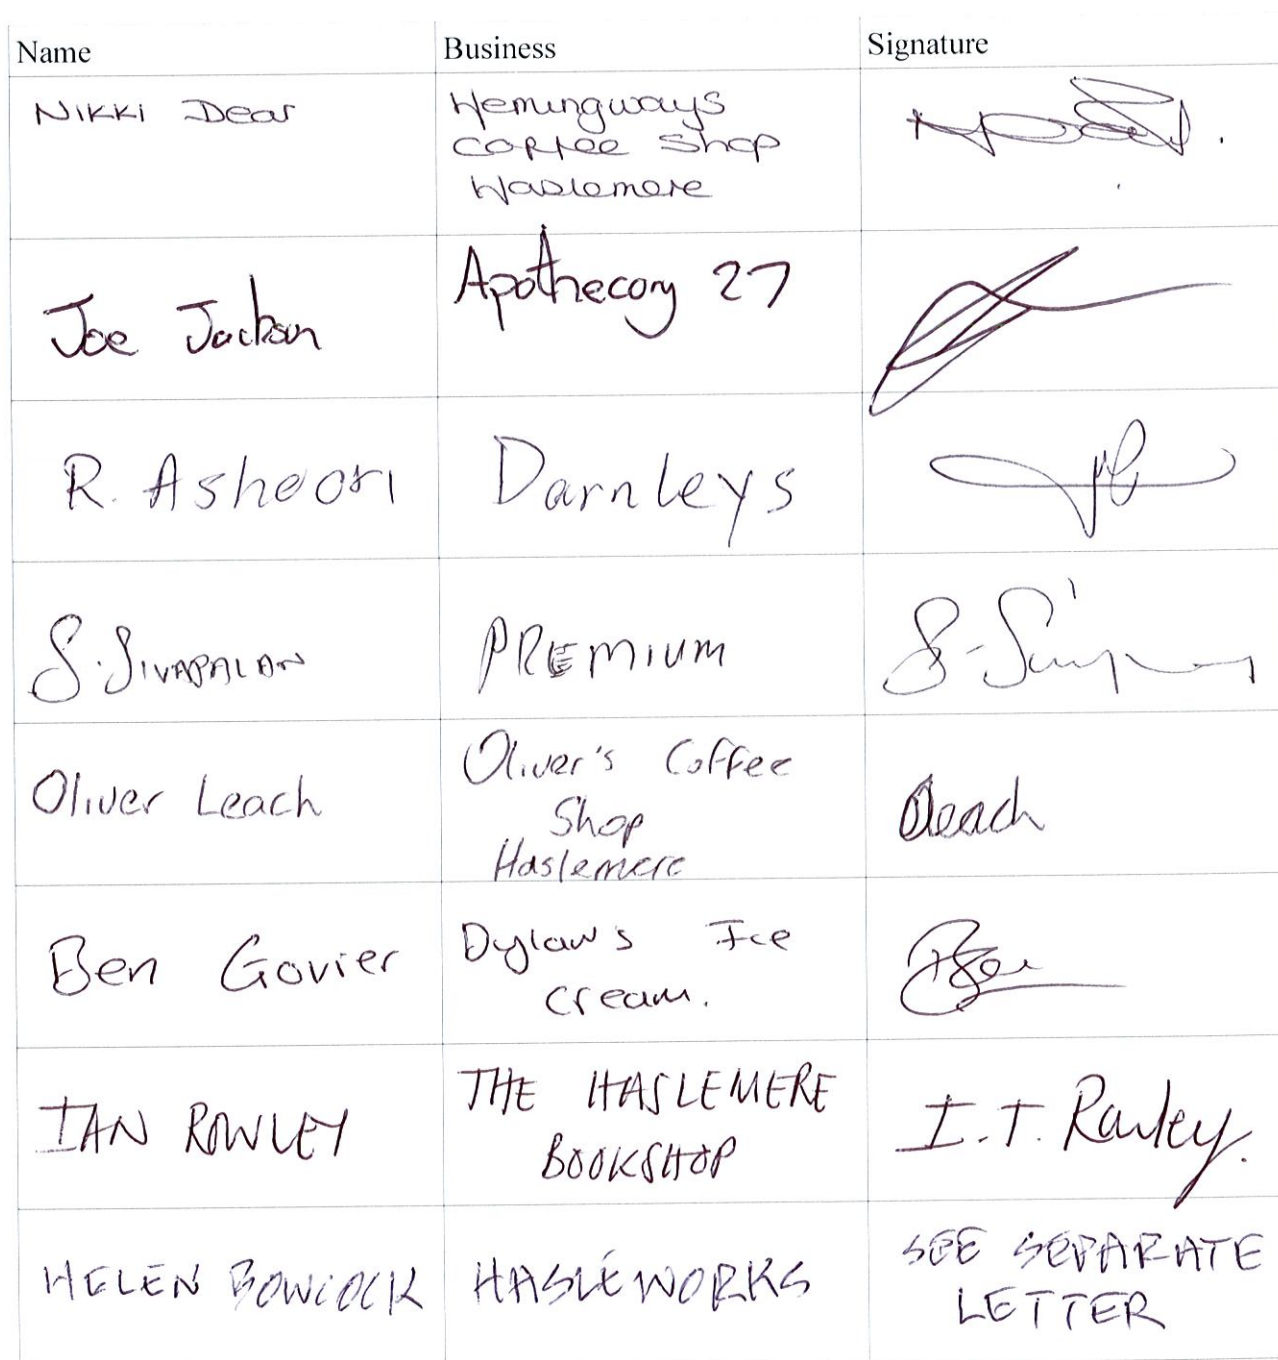 Name Business Signature
Nikki Dear Hemingways
Coffee Shop
Haslemere
Joe Jackson Apothecary 27
R. Ashoori Darnleys
S. SIVAPALAN PREMIUM
Oliver Leach Oliver's Coffee
Shop
Haslemere
Leach
Ben Govier Dylan's Ice
cream.
IAN ROWLEY THE HASLEMERE
BOOKSHOP
I.T. Rowley.
HELEN BOWCOCK HASLEWORKS SEE SEPARATE
LETTER